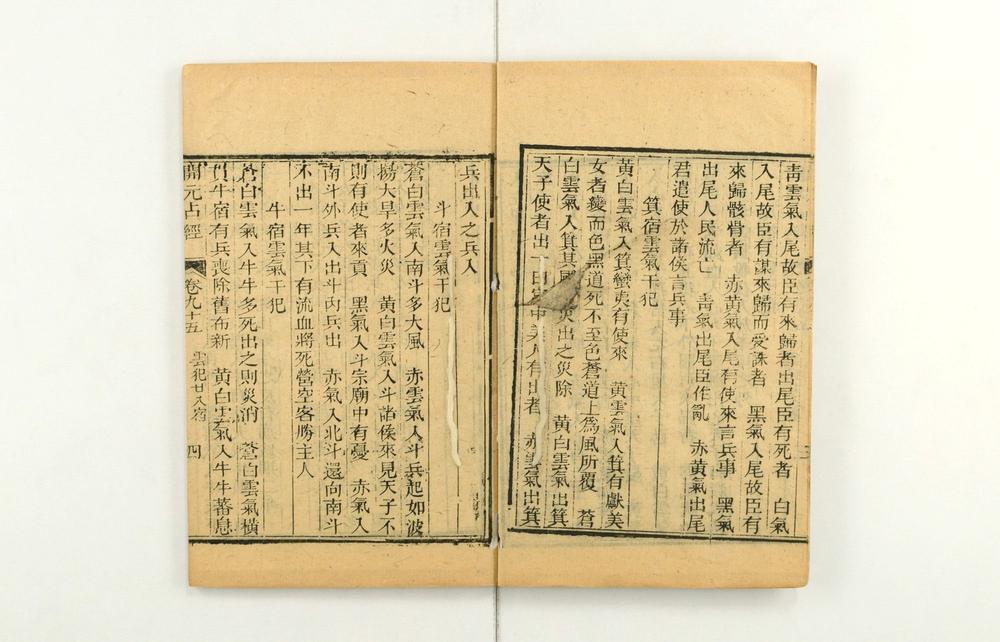 青雲氣入尾故臣有來歸者出尾臣有死者　白氣
入尾故臣有謀來歸而愛誅者　黑氣入尾故臣有
來歸骸骨者　赤黃氣入尾有使來言兵事　黑氣
出尾人民流亡　靑氣出尾臣作亂　赤黃氣出尾
君遣使於諸侯言兵事
箕宿雲氣干犯
黃白雲氣入箕蠻夷有使來　黃雲氣入箕有獻美
女者變而色黑道死不至色蒼道上爲風所覆　蒼
白雲氣入箕其國災出之災除　黃白雲氣出箕
天子使者出　中美人有出者　赤雲氣出箕
兵出入之兵入
斗宿雲氣干犯
蒼白雲氣入南斗多大風　赤雲氣入斗兵起如波
揚大旱多火災　黃白雲氣入斗諸侯來見天子不
則有使者來貢　黑氣入斗宗廟中有憂　赤氣入
南斗外兵入出斗內兵出　赤氣入北斗還向南斗
不出一年其下有流血將死營空客勝主人
牛宿雲氣干犯
蒼白雲氣入牛牛多死出之則災消　蒼白雲氣橫
貫牛宿有兵喪除舊布新　黃白雲氣入牛牛蕃息
開元占經　卷九十五　雲犯廿八宿　四